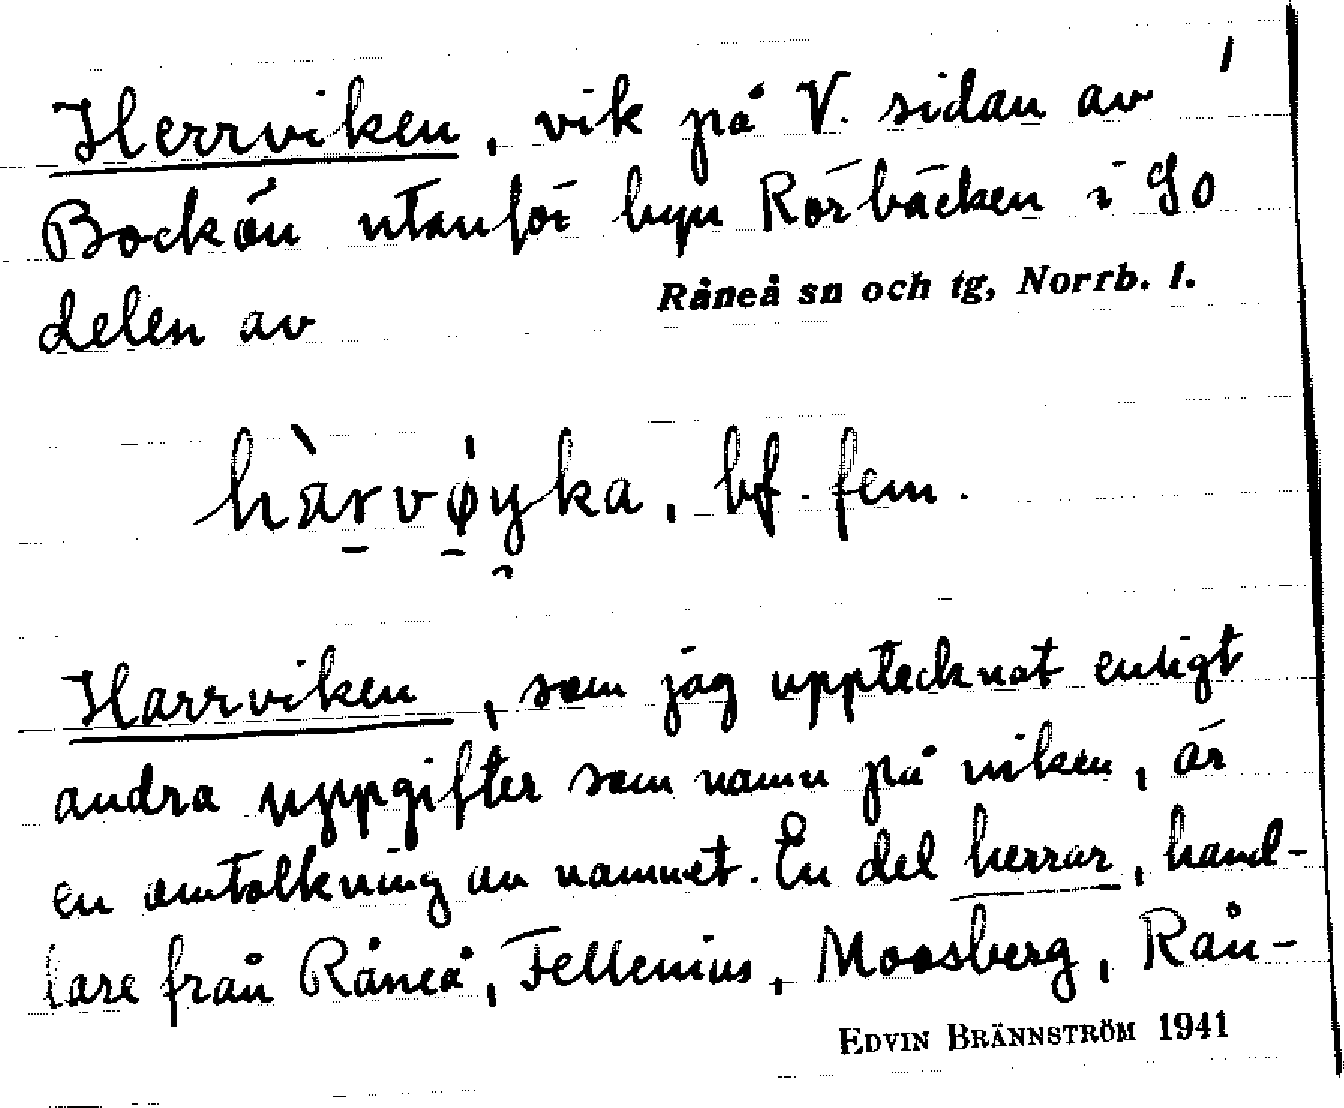 1
Herrviken, vik på V. sidan av
Bockön utanför byn Rörbäcken i SO
delen av Råneå sn och tg, Norrb. l.
hàrvø̀yka, bf. fem.
Harrviken, som jag upptecknat enligt
andra uppgifter som namn på viken, är
en omtolkning av namnet. En del herrar, hand-
lare från Råneå, Fellenius, Moosberg, Rån-
EDVIN BRÄNNSTRÖM 1941